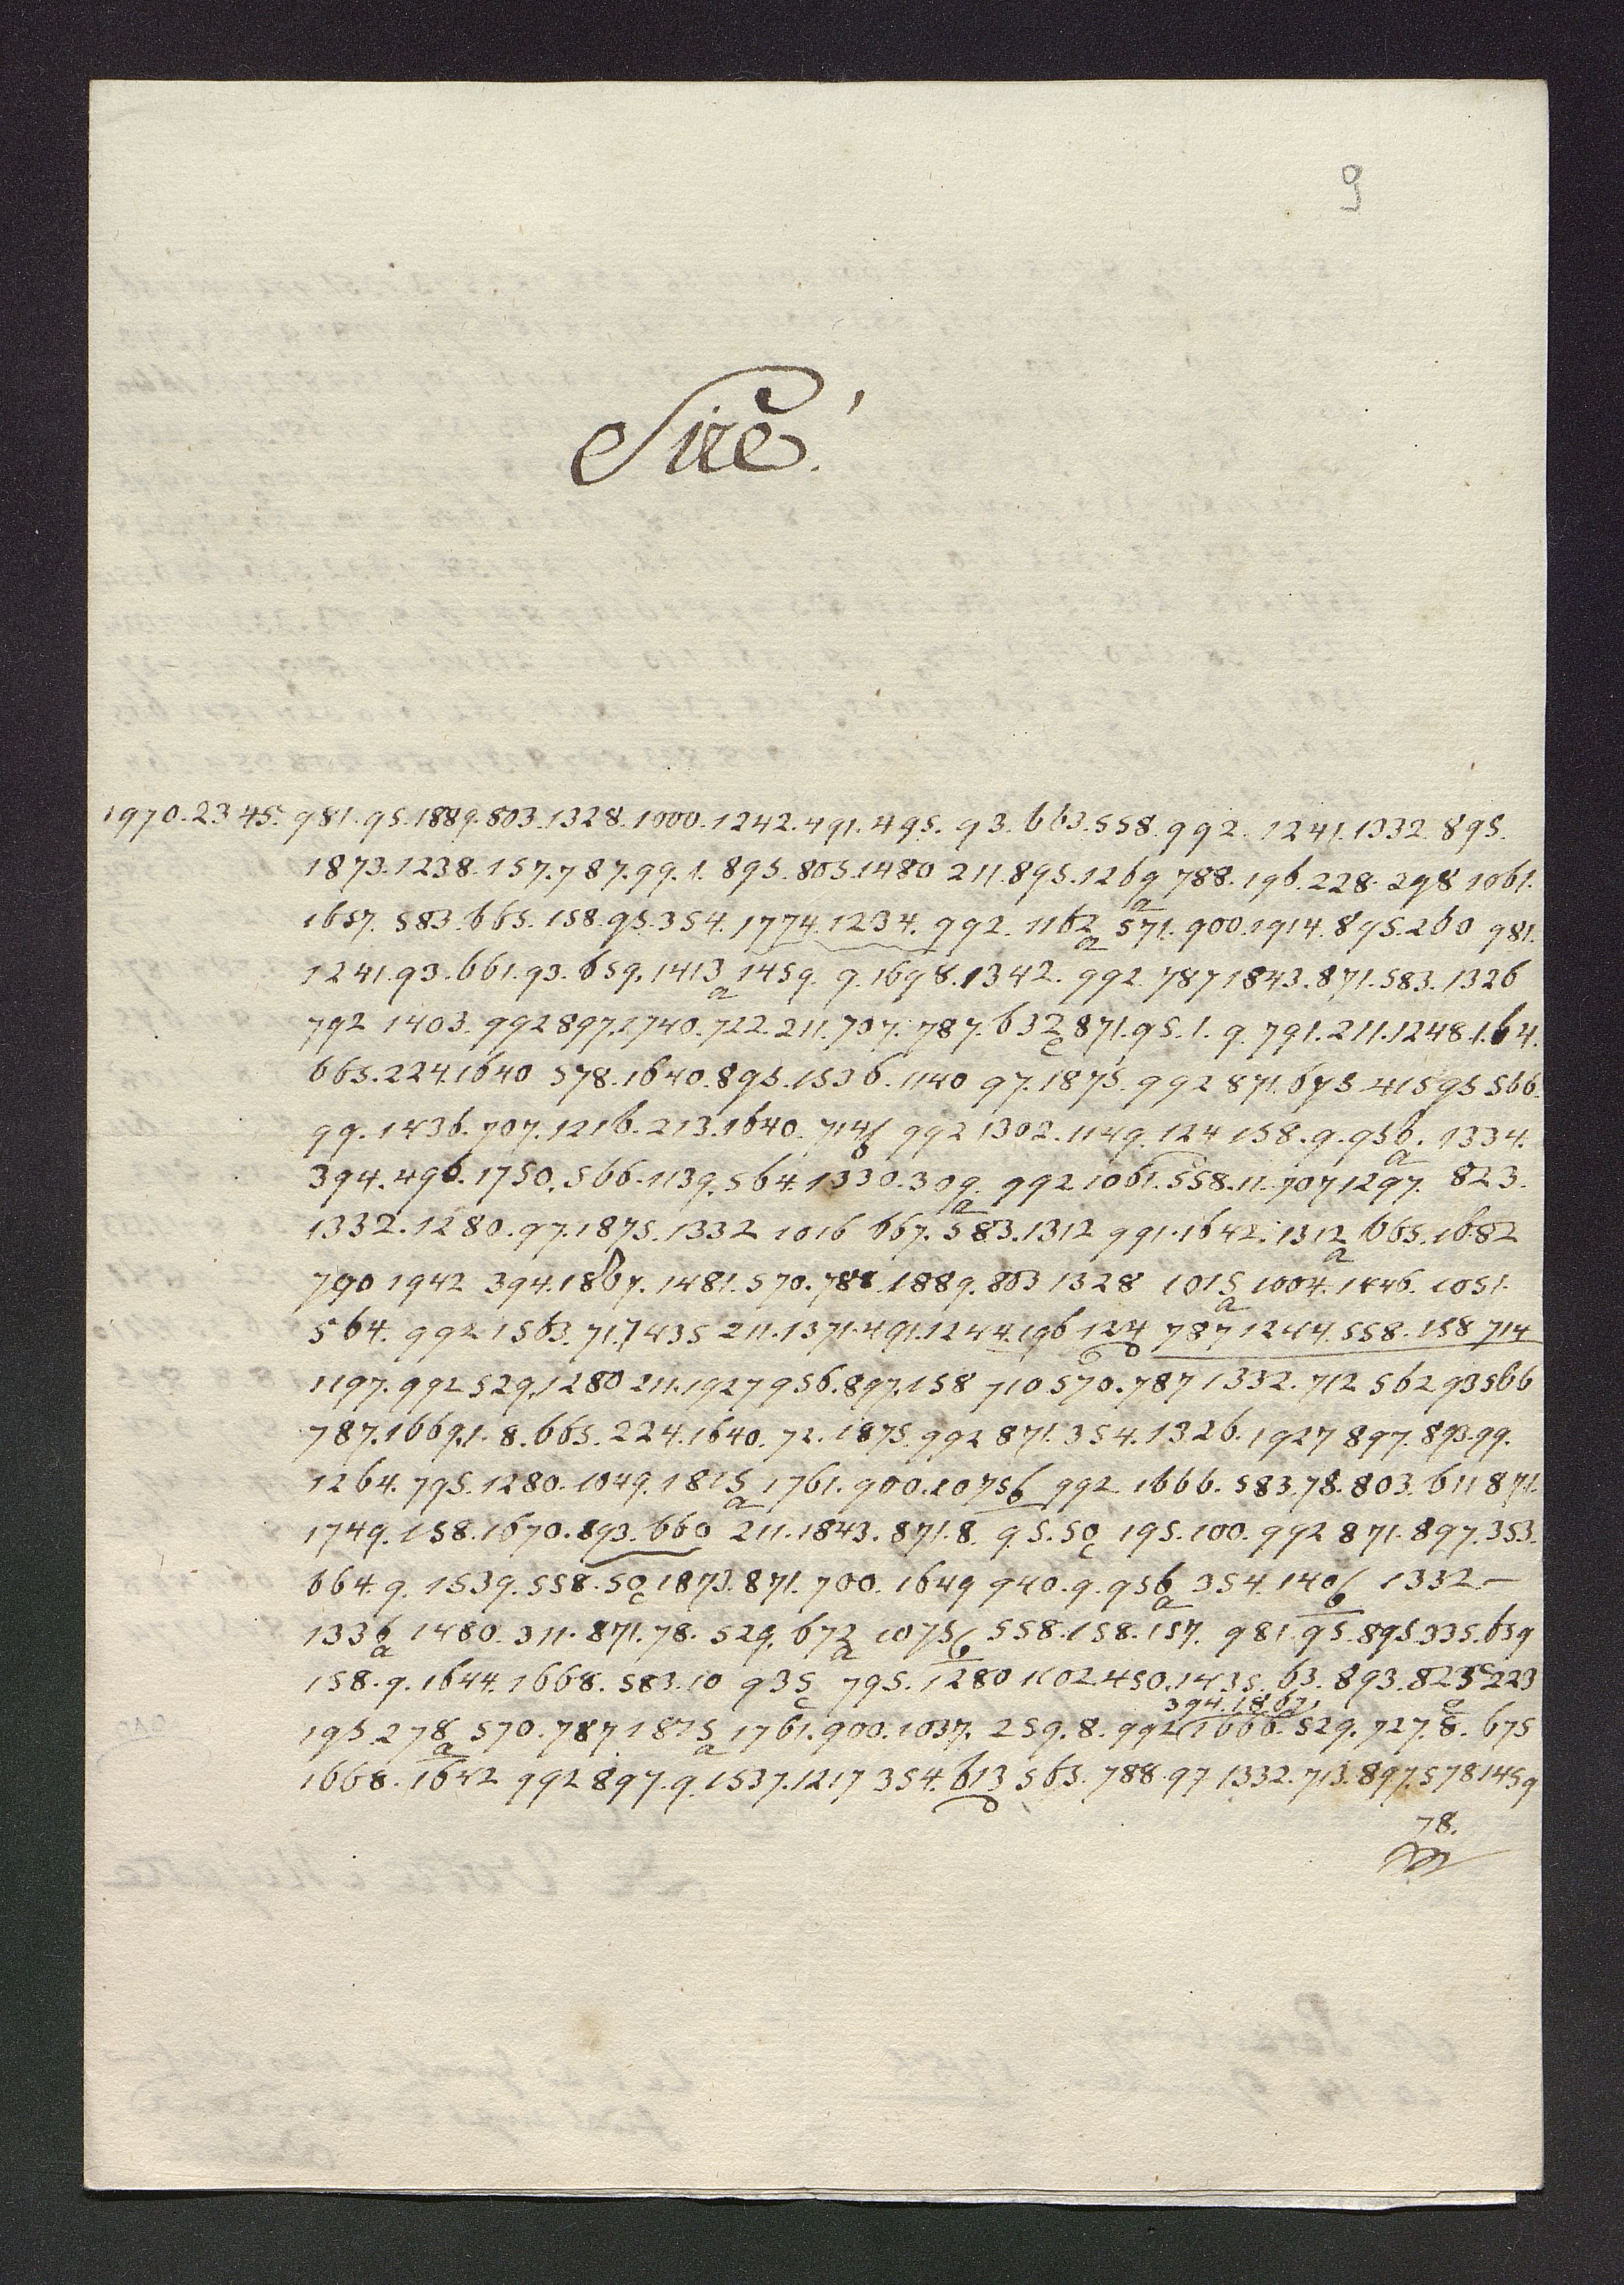 9
Sire!
1970.2345. 981.95.1889.803.1328.1000.1242.491.495.93.663.558.992.1241.1332.895.
1873.1238.157.787.99.1.895.805.1480 211.895.1269 a 788.196.228.298 1061.
1657.583.665.158.95.354.1774.1234.992.1162 a 571.900.1914.895.260 981.
1241.93.661.93.659.1413 a 1459.9.1698.1342.992.787 1843.871.583.1326
792 1403.992 897.1740.722.211.707.787.632 c 871.95.1.9.791.211.1248.1.64.
665.224.1640 578.1640.895.1536.1140 97.1875.992 871.675 415 95 566.
99.1436.707.1216.213.1640.714 b 992 1302.1149.124 158.9.956 a.1334.
394.496.1750.566.1139.564.1330.309 a.992 1061.558.11.707 1297.823.
1332.1280.97.1875.1332 1016 667.583.1312 991.1642.1312 a 665.1682
790 1942 394.1867.1481.570.788.1889.803 1328 1015 a 1004.1446.1051.
564.992 1563.717 435 211.1371.491.1244.196 124 787 1244.558.158 714
1197.992 529.1280 211.1927 956.897.158 710 570.787 1332.712 562 93 566
787.1669.1.8.665.224.1640.72.1875.992 871.354.1326.1927 897.893.99.
1264.795.1280.1049.1815 a 1761.900.1075 b 992 1666.583.78.803.611 871.
1749.158.1670.893.660 211.1843.871.8.95.50 c 195.100.992 871.897.353.
664.9.1539.558.50 c 1873.871.700.1649 940.9.956 a 354.140 b 1332.—
1336 a 1480.311.871.78.529.672 a 1075 b 558.158.157.981.95.895.335.659
158.9.1644.1668.583.10 935 c 795.1280 1102.450.1435.63.893.823 223
394.1867.
195.278 a 570.787 1875 a 1761.900.1037.259.8.992 1666.529.727.8.675
1668.1642 992 897.9.1537.1217 354.613 563.788.97 1332.713.897.578 1459
78.